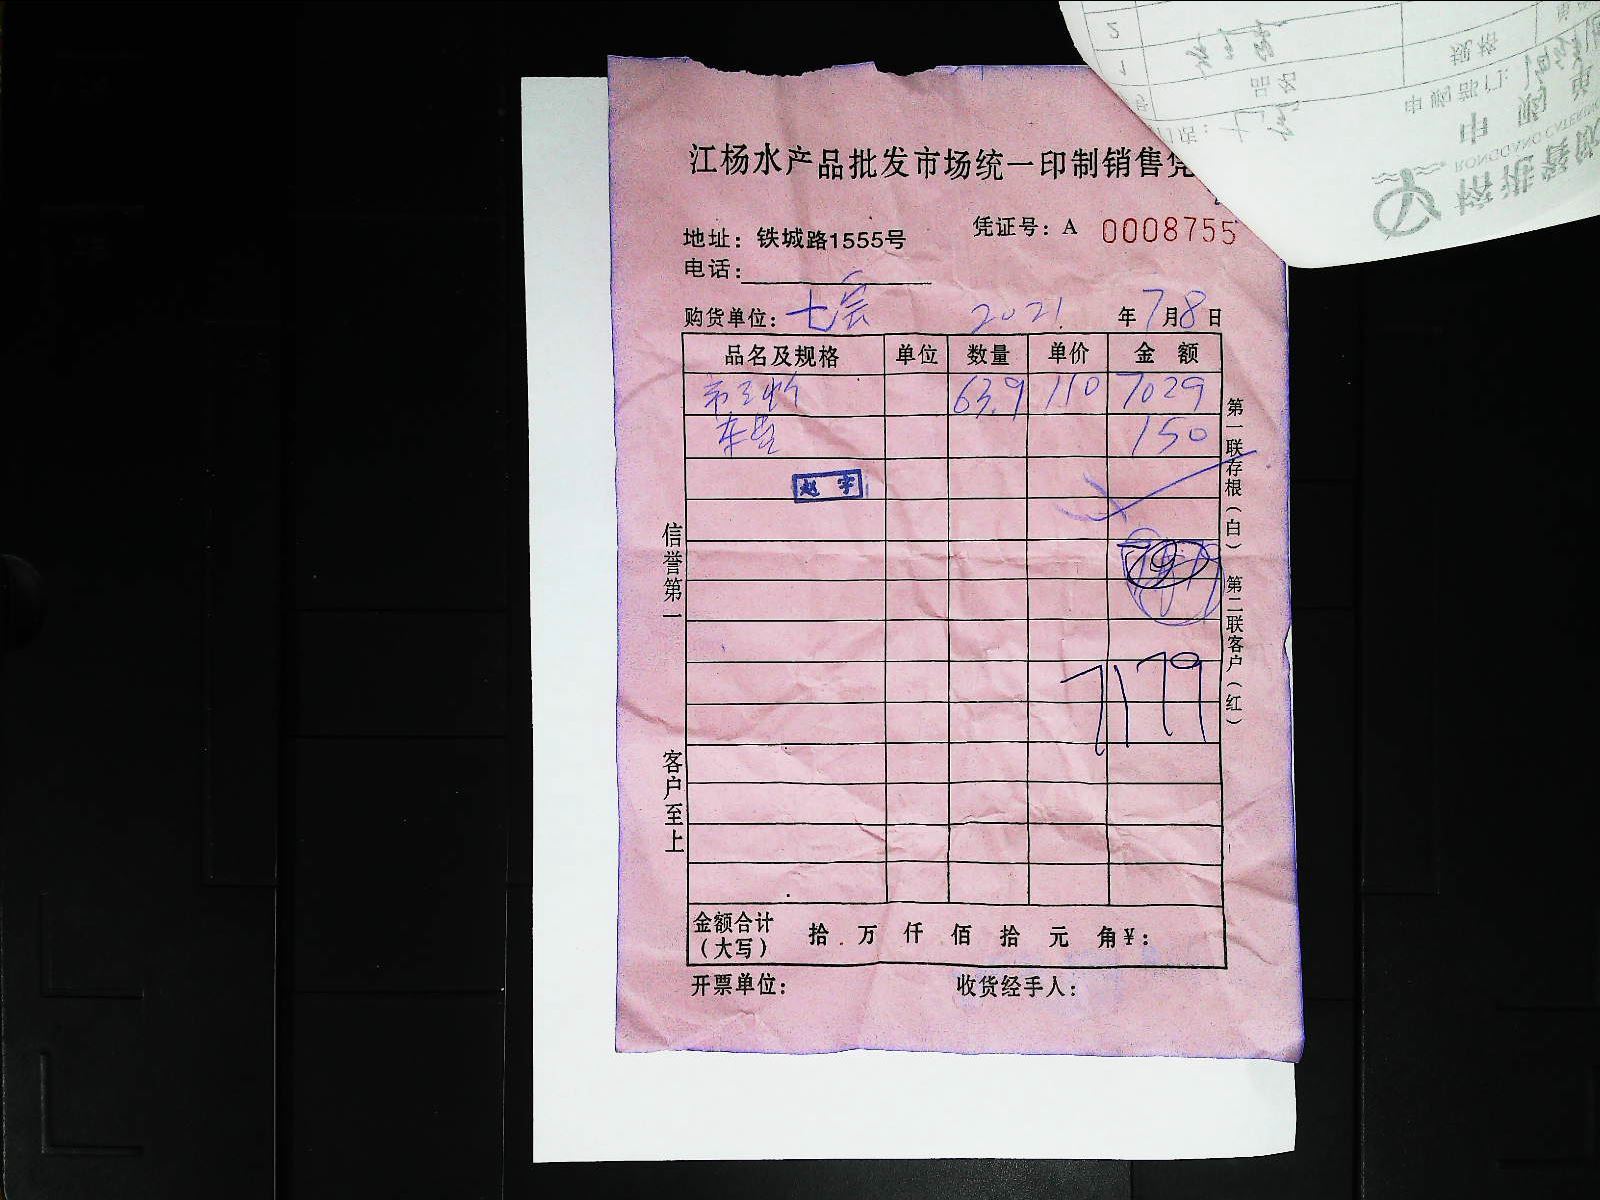 江杨水产品批发市场统一印制销售凭
地址：铁城路1555号
凭证号：A 0008755
电话：
购货单位：七宗 2021 年7月8日
品名及规格 单位 数量 单价 金额
63.9 110 7029
车费 150
赵宇
7179
金额合计（大写） 拾 万 仟 佰 拾 元 角¥：
开票单位： 收货经手人：
信誉第一
客户至上
第一联存根（白） 第二联客户（红）
申购部门：
品名
规格
1
2
申购单
RONGGANG CATERING